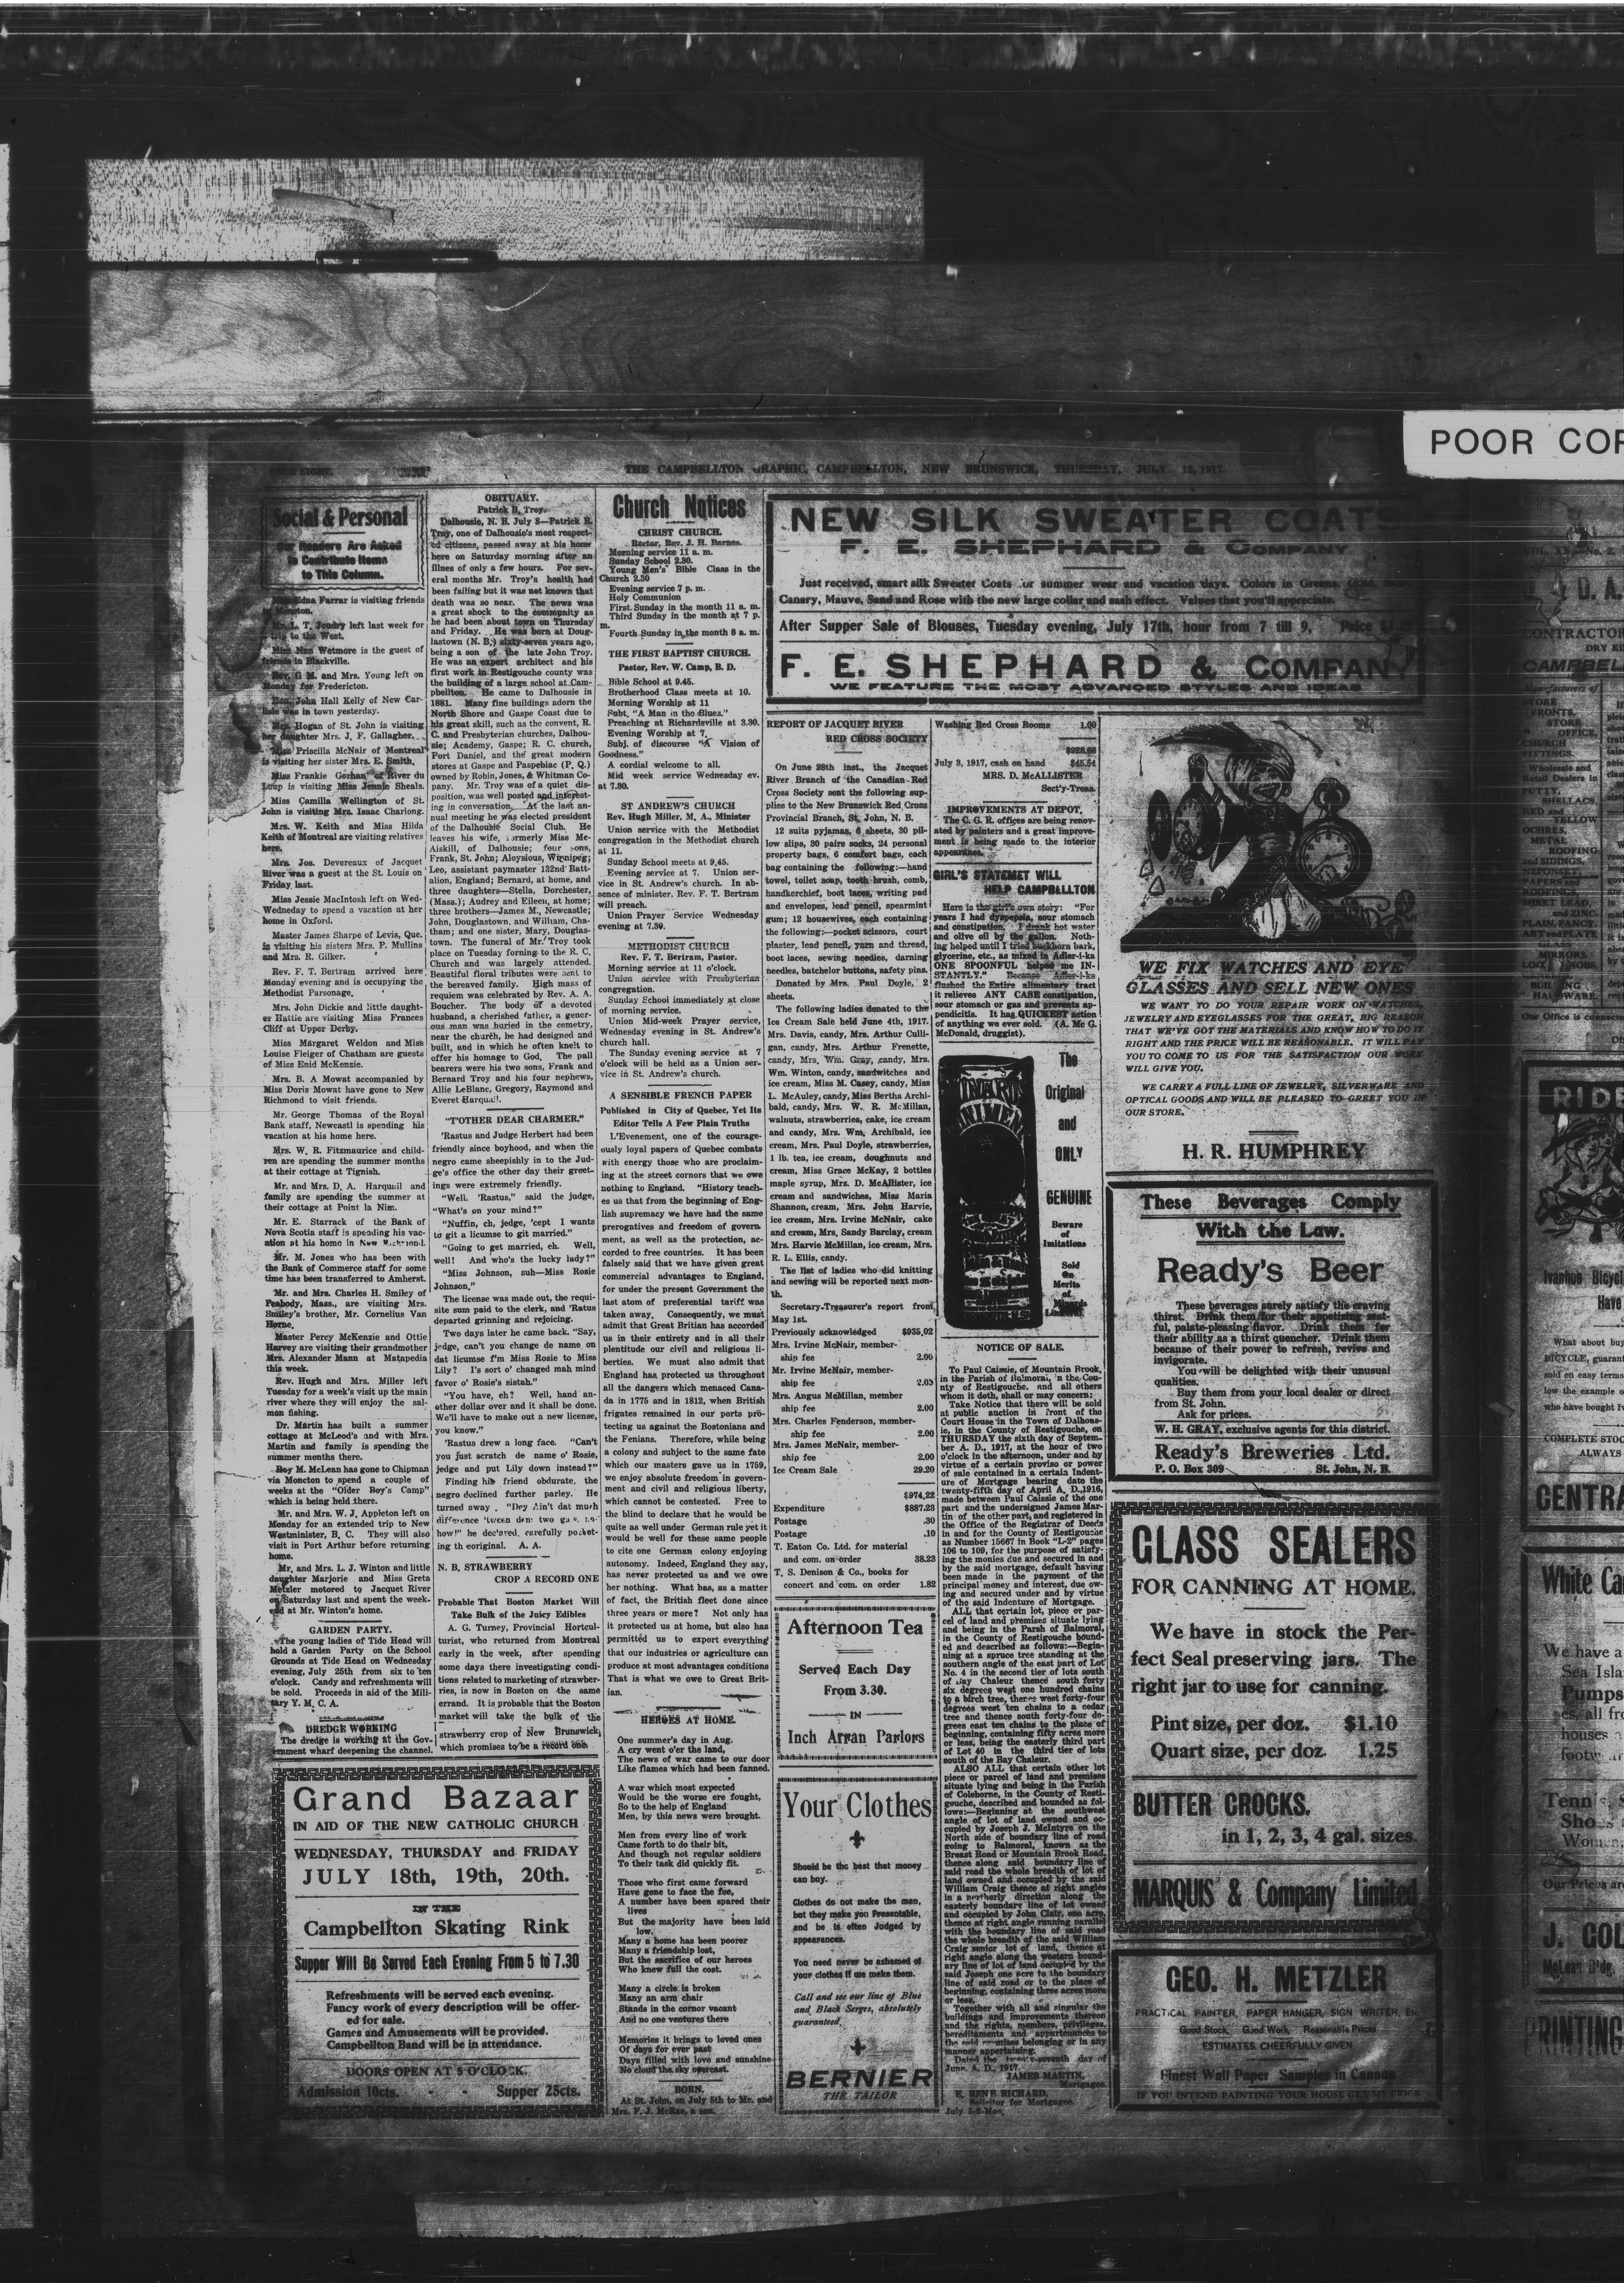 POOR COP
PAGE EIGHT.
THE CAMPBELLTON GRAPHIC, CAMPBELLTON, NEW BRUNSWICK, THURSDAY, JULY 12, 1917.
Social & Personal
Our Readers Are Asked
to Contribute Items
to This Column.
Miss Edna Farrar is visiting friends
in Moncton.
Mr. L. T. Joudry left last week for
a trip to the West.
Miss Nan Wetmore is the guest of
friends in Blackville.
Rev. G M. and Mrs. Young left on
Monday for Fredericton.
Hon. John Hall Kelly of New Car-
lisle was in town yesterday.
Mrs. Hogan of St. John is visiting
her daughter Mrs. J. F. Gallagher.
Miss Priscilla McNair of Montreal
is visiting her sister Mrs. E. Smith.
Miss Frankie Gorhan of River du
Loup is visiting Miss Jennie Sheals.
Miss Camilla Wellington of St.
John is visiting Mrs. Isaac Charlong.
Mrs. W. Keith and Miss Hilda
Keith of Montreal are visiting relatives
here.
Mrs. Jos. Devereaux of Jacquet
River was a guest at the St. Louis on
Friday last.
Miss Jessie MacIntosh left on Wed-
Wednesday to spend a vacation at her
home in Oxford.
Master James Sharpe of Levis, Que.
is visiting his sisters Mrs. P. Mullins
and Mrs. R. Gilker.
Rev. F. T. Bertram arrived here
Monday evening and is occupying the
Methodist Parsonage.
Mrs. John Dickie and little daught-
er Hattie are visiting Miss Frances
Cliff at Upper Derby.
Miss Margaret Weldon and Miss
Louise Fleiger of Chatham are guests
of Miss Enid McKenzie.
Mrs. B. A Mowat accompanied by
Miss Doris Mowat have gone to New
Richmond to visit friends.
Mr. George Thomas of the Royal
Bank staff, Newcastl is spending his
vacation at his home here.
Mrs. W. R. Fitzmaurice and child-
ren are spending the summer months
at their cottage at Tignish.
Mr. and Mrs. D. A. Harquail and
family are spending the summer at
their cottage at Point la Nim.
Mr. E. Starrack of the Bank of
Nova Scotia staff is spending his vac-
ation at his home in New Richmond.
Mr. M. Jones who has been with
the Bank of Commerce staff for some
time has been transferred to Amherst.
Mr. and Mrs. Charles H. Smiley of
Peabody, Mass., are visiting Mrs.
Smiley's brother, Mr. Cornelius Van
Horne.
Master Percy McKenzie and Ottie
Harvey are visiting their grandmother
Mrs. Alexander Mann at Matapedia
this week.
Rev. Hugh and Mrs. Miller left
Tuesday for a week's visit up the main
river where they will enjoy the sal-
mon fishing.
Dr. Martin has built a summer
cottage at McLeod's and with Mrs.
Martin and family is spending the
summer months there.
Roy M. McLean has gone to Chipman
via Moncton to spend a couple of
weeks at the "Older Boy's Camp"
which is being held there.
Mr. and Mrs. W. J. Appleton left on
Monday for an extended trip to New
Westminister, B. C. They will also
visit in Port Arthur before returning
home.
Mr. and Mrs. L. J. Winton and little
daughter Marjorie and Miss Greta
Metzler motored to Jacquet River
on Saturday last and spent the week-
end at Mr. Winton's home.
GARDEN PARTY.
The young ladies of Tide Head will
hold a Garden Party on the School
Grounds at Tide Head on Wednesday
evening, July 25th from six to ten
o'clock. Candy and refreshments will
be sold. Proceeds in aid of the Mili-
tary Y. M. C. A.
DREDGE WORKING
The dredge is working at the Gov-
ernment wharf deepening the channel.
OBITUARY.
Patrick B. Troy.
Dalhousie, N. B. July 8—Patrick B.
Troy, one of Dalhousie's most respect-
ed citizens, passed away at his home
here on Saturday morning after an
illnes of only a few hours. For sev-
eral months Mr. Troy's health had
been failing but it was not known that
death was so near. The news was
a great shock to the community as
he had been about town on Thursday
and Friday. He was born at Doug-
lastown (N. B.) sixty-seven years ago,
being a son of the late John Troy.
He was an expert architect and his
first work in Restigouche county was
the building of a large school at Cam-
pbellton. He came to Dalhousie in
1881. Many fine buildings adorn the
North Shore and Gaspe Coast due to
his great skill, such as the convent, R.
C. and Presbyterian churches, Dalhou-
sie; Academy, Gaspe; R. C. church,
Port Daniel, and the great modern
stores at Gaspe and Paspebiac (P. Q.)
owned by Robin, Jones, & Whitman Co-
pany. Mr. Troy was of a quiet dis-
position, was well posted and interest-
ing in conversation. At the last an-
nual meeting he was elected president
of the Dalhousie Social Club. He
leaves his wife, formerly Miss Mc-
Aiskill, of Dalhousie; four sons,
Frank, St. John; Aloysious, Winnipeg;
Leo, assistant paymaster 132nd Batt-
alion, England; Bernard, at home, and
three daughters—Stella, Dorchester,
(Mass.); Audrey and Eileen, at home;
three brothers—James M., Newcastle;
John, Douglastown, and William, Cha-
tham; and one sister, Mary, Douglas-
town. The funeral of Mr. Troy took
place on Tuesday forning to the R. C.
Church and was largely attended.
Beautiful floral tributes were sent to
the bereaved family. High mass of
requiem was celebrated by Rev. A. A.
Boucher. The body of a devoted
husband, a cherished father, a gener-
ous man was buried in the cemetry,
near the church, he had designed and
built, and in which he often knelt to
offer his homage to God. The pall
bearers were his two sons, Frank and
Bernard Troy and his four nephews,
Allie LeBlanc, Gregory, Raymond and
Everet Harquail.
"T'OTHER DEAR CHARMER."
'Rastus and Judge Herbert had been
friendly since boyhood, and when the
negro came sheepishly in to the Jud-
ge's office the other day their greet-
ings were extremely friendly.
"Well. 'Rastus," said the judge,
"What's on your mind?"
"Nuffin, ch, jedge, 'cept I wants
to git a licumse to git married."
"Going to get married, eh. Well,
well! And who's the lucky lady?"
"Miss Johnson, suh—Miss Rosie
Johnson."
The license was made out, the requi-
site sum paid to the clerk, and 'Ratus
departed grinning and rejoicing.
Two days later he came back. "Say,
jedge, can't you change de name on
dat licumse f'm Miss Rosie to Miss
Lily? I's sort o' changed mah mind
favor o' Rosie's sistah."
"You have, eh? Well, hand an-
other dollar over and it shall be done.
We'll have to make out a new license,
you know."
'Rastus drew a long face. "Can't
you just scratch de name o' Rosie,
jedge and put Lily down instead?"
Finding his friend obdurate, the
negro declined further parley. He
turned away . "Dey Ain't dat much
difference 'tween dem two gals, no-
how!" he declared, carefully pocket-
ing th eoriginal. A. A.
N. B. STRAWBERRY
CROP A RECORD ONE
Probable That Boston Market Will
Take Bulk of the Juicy Edibles
A. G. Turney, Provincial Hortcul-
turist, who returned from Montreal
early in the week, after spending
some days there investigating condi-
tions related to marketing of strawber-
ries, is now in Boston on the same
errand. It is probable that the Boston
market will take the bulk of the
strawberry crop of New Brunswick,
which promises to be a record one.
Grand Bazaar
IN AID OF THE NEW CATHOLIC CHURCH
WEDNESDAY, THURSDAY and FRIDAY
JULY 18th, 19th, 20th.
IN THE
Campbellton Skating Rink
Supper Will Be Served Each Evening From 5 to 7.30
Refreshments will be served each evening.
Fancy work of every description will be offer-
ed for sale.
Games and Amusements will be provided.
Campbellton Band will be in attendance.
DOORS OPEN AT 5 O'CLOCK.
Admission 10cts. - - Supper 25cts.
Church Notices
CHRIST CHURCH.
Rector, Rev. J. H. Barnes.
Morning service 11 a. m.
Sunday School 2.30.
Young Men's Bible Class in the
Church 2.30
Evening service 7 p. m.
Holy Communion
First Sunday in the month 11 a. m.
Third Sunday in the month at 7 p.
m.
Fourth Sunday in the month 8 a. m.
THE FIRST BAPTIST CHURCH.
Pastor, Rev. W. Camp, B. D.
Bible School at 9.45.
Brotherhood Class meets at 10.
Morning Worship at 11
Subt, "A Man in the Blues."
Preaching at Richardsville at 3.30.
Evening Worship at 7.
Subj. of discourse "A Vision of
Goodness."
A cordial welcome to all.
Mid week service Wednesday ev.
at 7.30.
ST ANDREW'S CHURCH
Rev. Hugh Miller, M. A., Minister
Union service with the Methodist
congregation in the Methodist church
at 11.
Sunday School meets at 9.45.
Evening service at 7. Union ser-
vice in St. Andrew's church. In ab-
sence of minister. Rev. F. T. Bertram
will preach.
Union Prayer Service Wednesday
evening at 7.30.
METHODIST CHURCH
Rev. F. T. Bertram, Pastor.
Morning service at 11 o'clock.
Union service with Presbyterian
congregation.
Sunday School immediately at close
of morning service.
Union Mid-week Prayer service,
Wednesday evening in St. Andrew's
church hall.
The Sunday evening service at 7
o'clock will be held as a Union ser-
vice in St. Andrew's church.
A SENSIBLE FRENCH PAPER
Published in City of Quebec, Yet Its
Editor Tells A Few Plain Truths
L'Evenement, one of the courage-
ously loyal papers of Quebec combats
with energy those who are proclaim-
ing at the street cornors that we owe
nothing to England. "History teach-
es us that from the beginning of Eng-
lish supremacy we have had the same
prerogatives and freedom of govern
ment, as well as the protection, ac-
corded to free countries. It has been
falsely said that we have given great
commercial advantages to England,
for under the present Government the
last atom of preferential tariff was
taken away. Consequently, we must
admit that Great Britian has accorded
us in their entirety and in all their
plentitude our civil and religious li-
berties. We must also admit that
England has protected us throughout
all the dangers which menaced Cana-
da in 1775 and in 1812, when British
frigates remained in our ports pro-
tecting us against the Bostonians and
the Fenians. Therefore, while being
a colony and subject to the same fate
which our masters gave us in 1759,
we enjoy absolute freedom in govern-
ment and civil and religious liberty,
which cannot be contested. Free to
the blind to declare that he would be
quite as well under German rule yet it
would be well for these same people
to cite one German colony enjoying
autonomy. Indeed, England they say,
has never protected us and we owe
her nothing. What has, as a matter
of fact, the British fleet done since
three years or more? Not only has
it protected us at home, but also has
permitted us to export everything
that our industries or agriculture can
produce at most advantages conditions
That is what we owe to Great Brit-
ian.
HEROES AT HOME.
One summer's day in Aug.
A cry went o'er the land,
The news of war came to our door
Like flames which had been fanned.
A war which most expected
Would be the worse ere fought,
So to the help of England
Men, by this news were brought.
Men from every line of work
Came forth to do their bit,
And though not regular soldiers
To their task did quickly fit.
Those who first came forward
Have gone to face the foe,
A number have been spared their
lives
But the majority have been laid
low.
Many a home has been poorer
Many a friendship lost,
But the sacrifice of our heroes
Who knew full the cost.
Many a circle is broken
Many an arm chair
Stands in the cornor vacant
And no one ventures there
Memories it brings to loved ones
Of days for ever past
Days filled with love and sunshine
No cloud the sky o'ercast.
BORN.
At St. John, on July 5th to Mr. and
Mrs. F. J. McRae, a son.
NEW SILK SWEATER COATS
F. E. SHEPHARD & COMPANY
Just received, smart silk Sweater Coats for summer wear and vacation days. Colors in Greens, Gold,
Canary, Mauve, Sand and Rose with the new large collar and sash effect. Values that you'll appreciate.
After Supper Sale of Blouses, Tuesday evening, July 17th, hour from 7 till 9, Price
F. E. SHEPHARD & COMPAN
WE FEATURE THE MOST ADVANCED STYLES AND IDEAS
REPORT OF JACQUET RIVER
RED CROSS SOCIETY
On June 28th inst., the Jacquet
River Branch of the Canadian Red
Cross Society sent the following sup-
plies to the New Brunswick Red Cross
Provincial Branch, St. John, N. B.
12 suits pyjamas, 6 sheets, 30 pil-
low slips, 30 pairs socks, 24 personal
property bags, 6 comfort bags, each
bag containing the following:—hand
towel, toilet soap, tooth brush, comb,
handkerchief, boot laces, writing pad
and envelopes, lead pencil, spearmint
gum; 12 housewives, each containing
the following:—pocket scissors, court
plaster, lead pencil, yarn and thread,
boot laces, sewing needles, darning
needles, batchelor buttons, safety pins.
Donated by Mrs. Paul Doyle, 2
sheets.
The following ladies donated to the
Ice Cream Sale held June 4th, 1917.
Mrs. Davis, candy, Mrs. Arthur Culli-
gan, candy, Mrs. Arthur Frenette,
candy, Mrs. Wm. Gray, candy, Mrs.
Wm. Winton, candy, sandwitches and
ice cream, Miss M. Casey, candy, Miss
L. McAuley, candy, Miss Bertha Archi-
bald, candy, Mrs. W. R. McMillan,
walnuts, strawberries, cake, ice cream
and candy, Mrs. Wm. Archibald, ice
cream, Mrs. Paul Doyle, strawberries,
1 lb. tea, ice cream, doughnuts and
cream, Miss Grace McKay, 2 bottles
maple syrup, Mrs. D. McAllister, ice
cream and sandwiches, Miss Maria
Shannon, cream, Mrs. John Harvie,
ice cream, Mrs. Irvine McNair, cake
and cream, Mrs. Sandy Barclay, cream
Mrs. Harvie McMillan, ice cream, Mrs.
R. L. Ellis, candy.
The list of ladies who did knitting
and sewing will be reported next mon-
th.
Secretary-Treasurer's report from
May 1st.
Previously acknowledged $935.02
Mrs. Irvine McNair, member-
ship fee 2.00
Mr. Irvine McNair, member-
ship fee 2.05
Mrs. Angus McMillan, member
ship fee 2.00
Mrs. Charles Fenderson, member-
ship fee 2.00
Mrs. James McNair, member-
ship fee 2.00
Ice Cream Sale 29.20
$974.22
Expenditure $887.23
Postage .30
Postage .10
T. Eaton Co. Ltd. for material
and com. on order 38.23
T. S. Denison & Co., books for
concert and com. on order 1.82
Afternoon Tea
Served Each Day
From 3.30.
— IN —
Inch Arran Parlors
Your Clothes
Should be the best that money
can buy.
Clothes do not make the man,
but they make you Presentable,
and he is often Judged by
appearances.
You need never be ashamed of
your clothes if we make them.
Call and see our line of Blue
and Black Serges, absolutely
guaranteed.
BERNIER
THE TAILOR
Washing Red Cross Rooms 1.00
$928.68
July 3, 1917, cash on hand $45.54
MRS. D. McALLISTER
Sect'y-Treas.
IMPROVEMENTS AT DEPOT.
The C. G. R. offices are being renov-
ated by painters and a great improve-
ment is being made to the interior
appearance.
GIRL'S STATEMET WILL
HELP CAMPBLLTON
Here is the girl's own story: "For
years I had dyspepsia, sour stomach
and constipation. I drank hot water
and olive oil by the gallon. Noth-
ing helped until I tried buckhorn bark,
glycerine, etc., as mixed in Adler-i-ka
ONE SPOONFUL helped me IN-
STANTLY." Because Adler-i-ka
flushed the Entire alimentary tract
it relieves ANY CASE constipation,
sour stomach or gas and prevents ap-
pendicitis. It has QUICKEST action
of anything we ever sold. (A. Mc G.
McDonald, druggist).
The
Original
and
ONLY
GENUINE
Beware
of
Imitations
Sold
On
Merits
of
Minards
Liniment
NOTICE OF SALE.
To Paul Caissie, of Mountain Brook,
in the Parish of Balmoral, in the Cou-
nty of Restigouche, and all others
whom it doth, shall or may concern:
Take Notice that there will be sold
at public auction in front of the
Court House in the Town of Dalhous-
ie, in the County of Restigouche, on
THURSDAY the sixth day of Septem-
ber A. D., 1917, at the hour of two
o'clock in the afternoon, under and by
virtue of a certain proviso or power
of sale contained in a certain Indent-
ure of Mortgage bearing date the
twenty-fifth day of April A. D., 1916,
made between Paul Caissie of the one
part and the undersigned James Mar-
tin of the other part, and registered in
the Office of the Registrar of Deeds
in and for the County of Restigouche
as Number 15667 in Book "L-2" pages
106 to 109, for the purpose of satisfy-
ing the monies due and secured in and
by the said mortgage, default having
been made in the payment of the
principal money and interest, due ow-
ing and secured under and by virtue
of the said Indenture of Mortgage.
ALL that certain lot, piece or par-
cel of land and premises situate lying
and being in the Parsh of Balmoral,
in the County of Restigouche bound-
ed and described as follows:—Begin-
ning at a spruce tree standing at the
southern angle of the east part of Lot
No. 4 in the second tier of lots south
of Bay Chaleur thence south forty
six degrees west one hundred chains
to a birch tree, thence west forty-four
degrees west ten chains to a cedar
tree and thence south forty-four de-
grees east ten chains to the place of
beginning, containing fifty acres more
or less, being the easterly third part
of Lot 40 in the third tier of lots
south of the Bay Chaleur.
ALSO ALL that certain other lot
piece or parcel of land and premises
situate lying and being in the Parish
of Coleborne, in the County of Resti-
gouche, described and bounded as fol-
lows:—Beginning at the southwest
angle of lot of land owned and oc-
cupied by Joseph J. McIntyre on the
North side of boundary line of road
going to Balmoral, known as the
Breast Road or Mountain Brook Road,
thence along said boundary line of
said road the whole breadth of lot of
land owned and occupied by the said
William Craig thence at right angles
in a northerly direction along the
easterly boundary line of lot owned
and occupied by John Clair, one acre,
thence at right angle running parallel
with the boundary line of said road
the whole breadth of the said William
Craig senior lot of land, thence at
right angle along the western bound-
ary line of lot of land occupied by the
said Joseph one acre to the boundary
line of said road or to the place of
beginning, containing three acres more
or less.
Together with all and singular the
buildings and improvements thereon
and the rights, members, privileges,
hereditaments and appurtenances to
the said premises belonging or in any
manner appertaining.
Dated the twenty-seventh day of
June, A. D., 1917.
JAMES MARTIN,
Mortgagee.
E. RENE RICHARD,
Solicitor for Mortgagee.
WE FIX WATCHES AND EYE
GLASSES AND SELL NEW ONES
WE WANT TO DO YOUR REPAIR WORK ON WATCHES,
JEWELRY AND EYEGLASSES FOR THE GREAT, BIG REASON
THAT WE'VE GOT THE MATERIALS AND KNOW HOW TO DO IT
RIGHT AND THE PRICE WILL BE REASONABLE. IT WILL PAY
YOU TO COME TO US FOR THE SATISFACTION OUR WORK
WILL GIVE YOU.
WE CARRY A FULL LINE OF JEWELRY, SILVERWARE AND
OPTICAL GOODS AND WILL BE PLEASED TO GREET YOU IN
OUR STORE.
H. R. HUMPHREY
These Beverages Comply
With the Law.
Ready's Beer
These beverages surely satisfy the craving
thirst. Drink them for their appetising zest-
ful, palate-pleasing flavor. Drink them for
their ability as a thirst quencher. Drink them
because of their power to refresh, revive and
invigorate.
You will be delighted with their unusual
qualities.
Buy them from your local dealer or direct
from St. John.
Ask for prices.
W. H. GRAY, exclusive agents for this district.
Ready's Breweries Ltd.
P. O. Box 309 St. John, N. B.
GLASS SEALERS
FOR CANNING AT HOME.
We have in stock the Per-
fect Seal preserving jars. The
right jar to use for canning.
Pint size, per doz. $1.10
Quart size, per doz. 1.25
BUTTER CROCKS.
in 1, 2, 3, 4 gal. sizes.
MARQUIS & Company Limited
GEO. H. METZLER
PRACTICAL PAINTER, PAPER HANGER, SIGN WRITER, Etc
Good Stock, Good Work, Reasonable Prices
ESTIMATES CHEERFULLY GIVEN
Finest Wall Paper Samples in Canada
IF YOU INTEND PAINTING YOUR HOUSE GET MY PRICES
D. A.
CONTRACTOR
DRY KI
CAMPBEL
Manufacturers of
STORE
FRONTS,
STORE
OFFICE,
CHURCH
FITTINGS.
Wholesale and
Retail Dealers in
PUTTY,
SHELLACS,
RED and
YELLOW
OCHRES,
METAL
ROOFING
and SIDINGS,
NEPONSET,
PAPERS and
ROOFINGS,
SHEET LEAD,
and ZINC,
PLAIN, FANCY,
ART and PLATE
GLASS
MIRRORS
LOCKS, KNOBS,
BUILDING
HARDWARE.
Our Office is connected
RIDE
Ivanhoe Bicycl
Have
What about buy
BICYCLE, guaran
sold on easy terms
low the example o
who have bought Iv
COMPLETE STOC
ALWAYS
CENTRA
White Ca
We have a
Sea Isla
Pumps
es, all fro
houses
footw
Tenn
Sho
Women,
Our Prices are
J. COL
McLean B'dg.
PRINTING